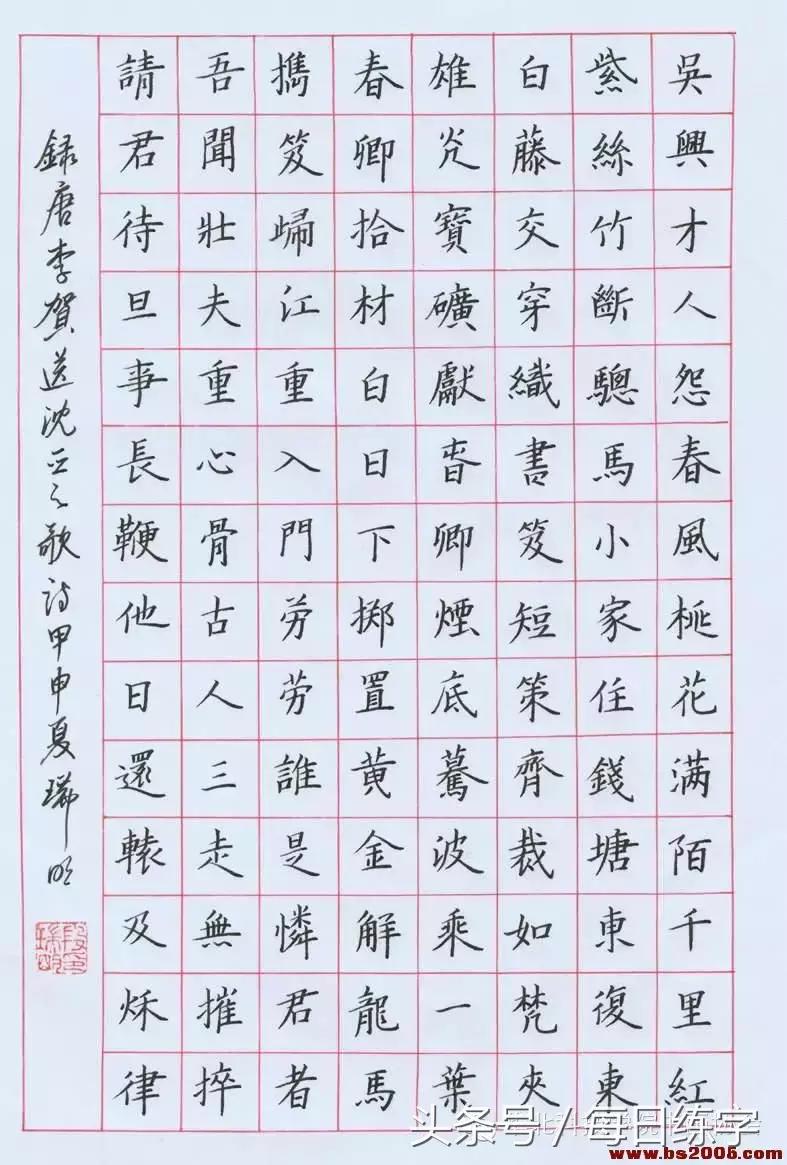 吳興才人怨春風桃花滿陌千里紅
紫絲竹斷驄馬小家住錢塘東復東
白藤交穿織書笈短策齊裁如梵夾
雄光寶礦獻春卿煙底驀波乘一葉
春卿拾材白日下擲置黃金解龍馬
攜笈歸江重入門勞勞誰是憐君者
吾聞壯夫重心骨古人三走無摧捽
請君待旦事長鞭他日還轅及秋律
錄唐李賀送沈亞之歌詩甲申夏瑞明
头条号/每日练字
www.bs2005.com